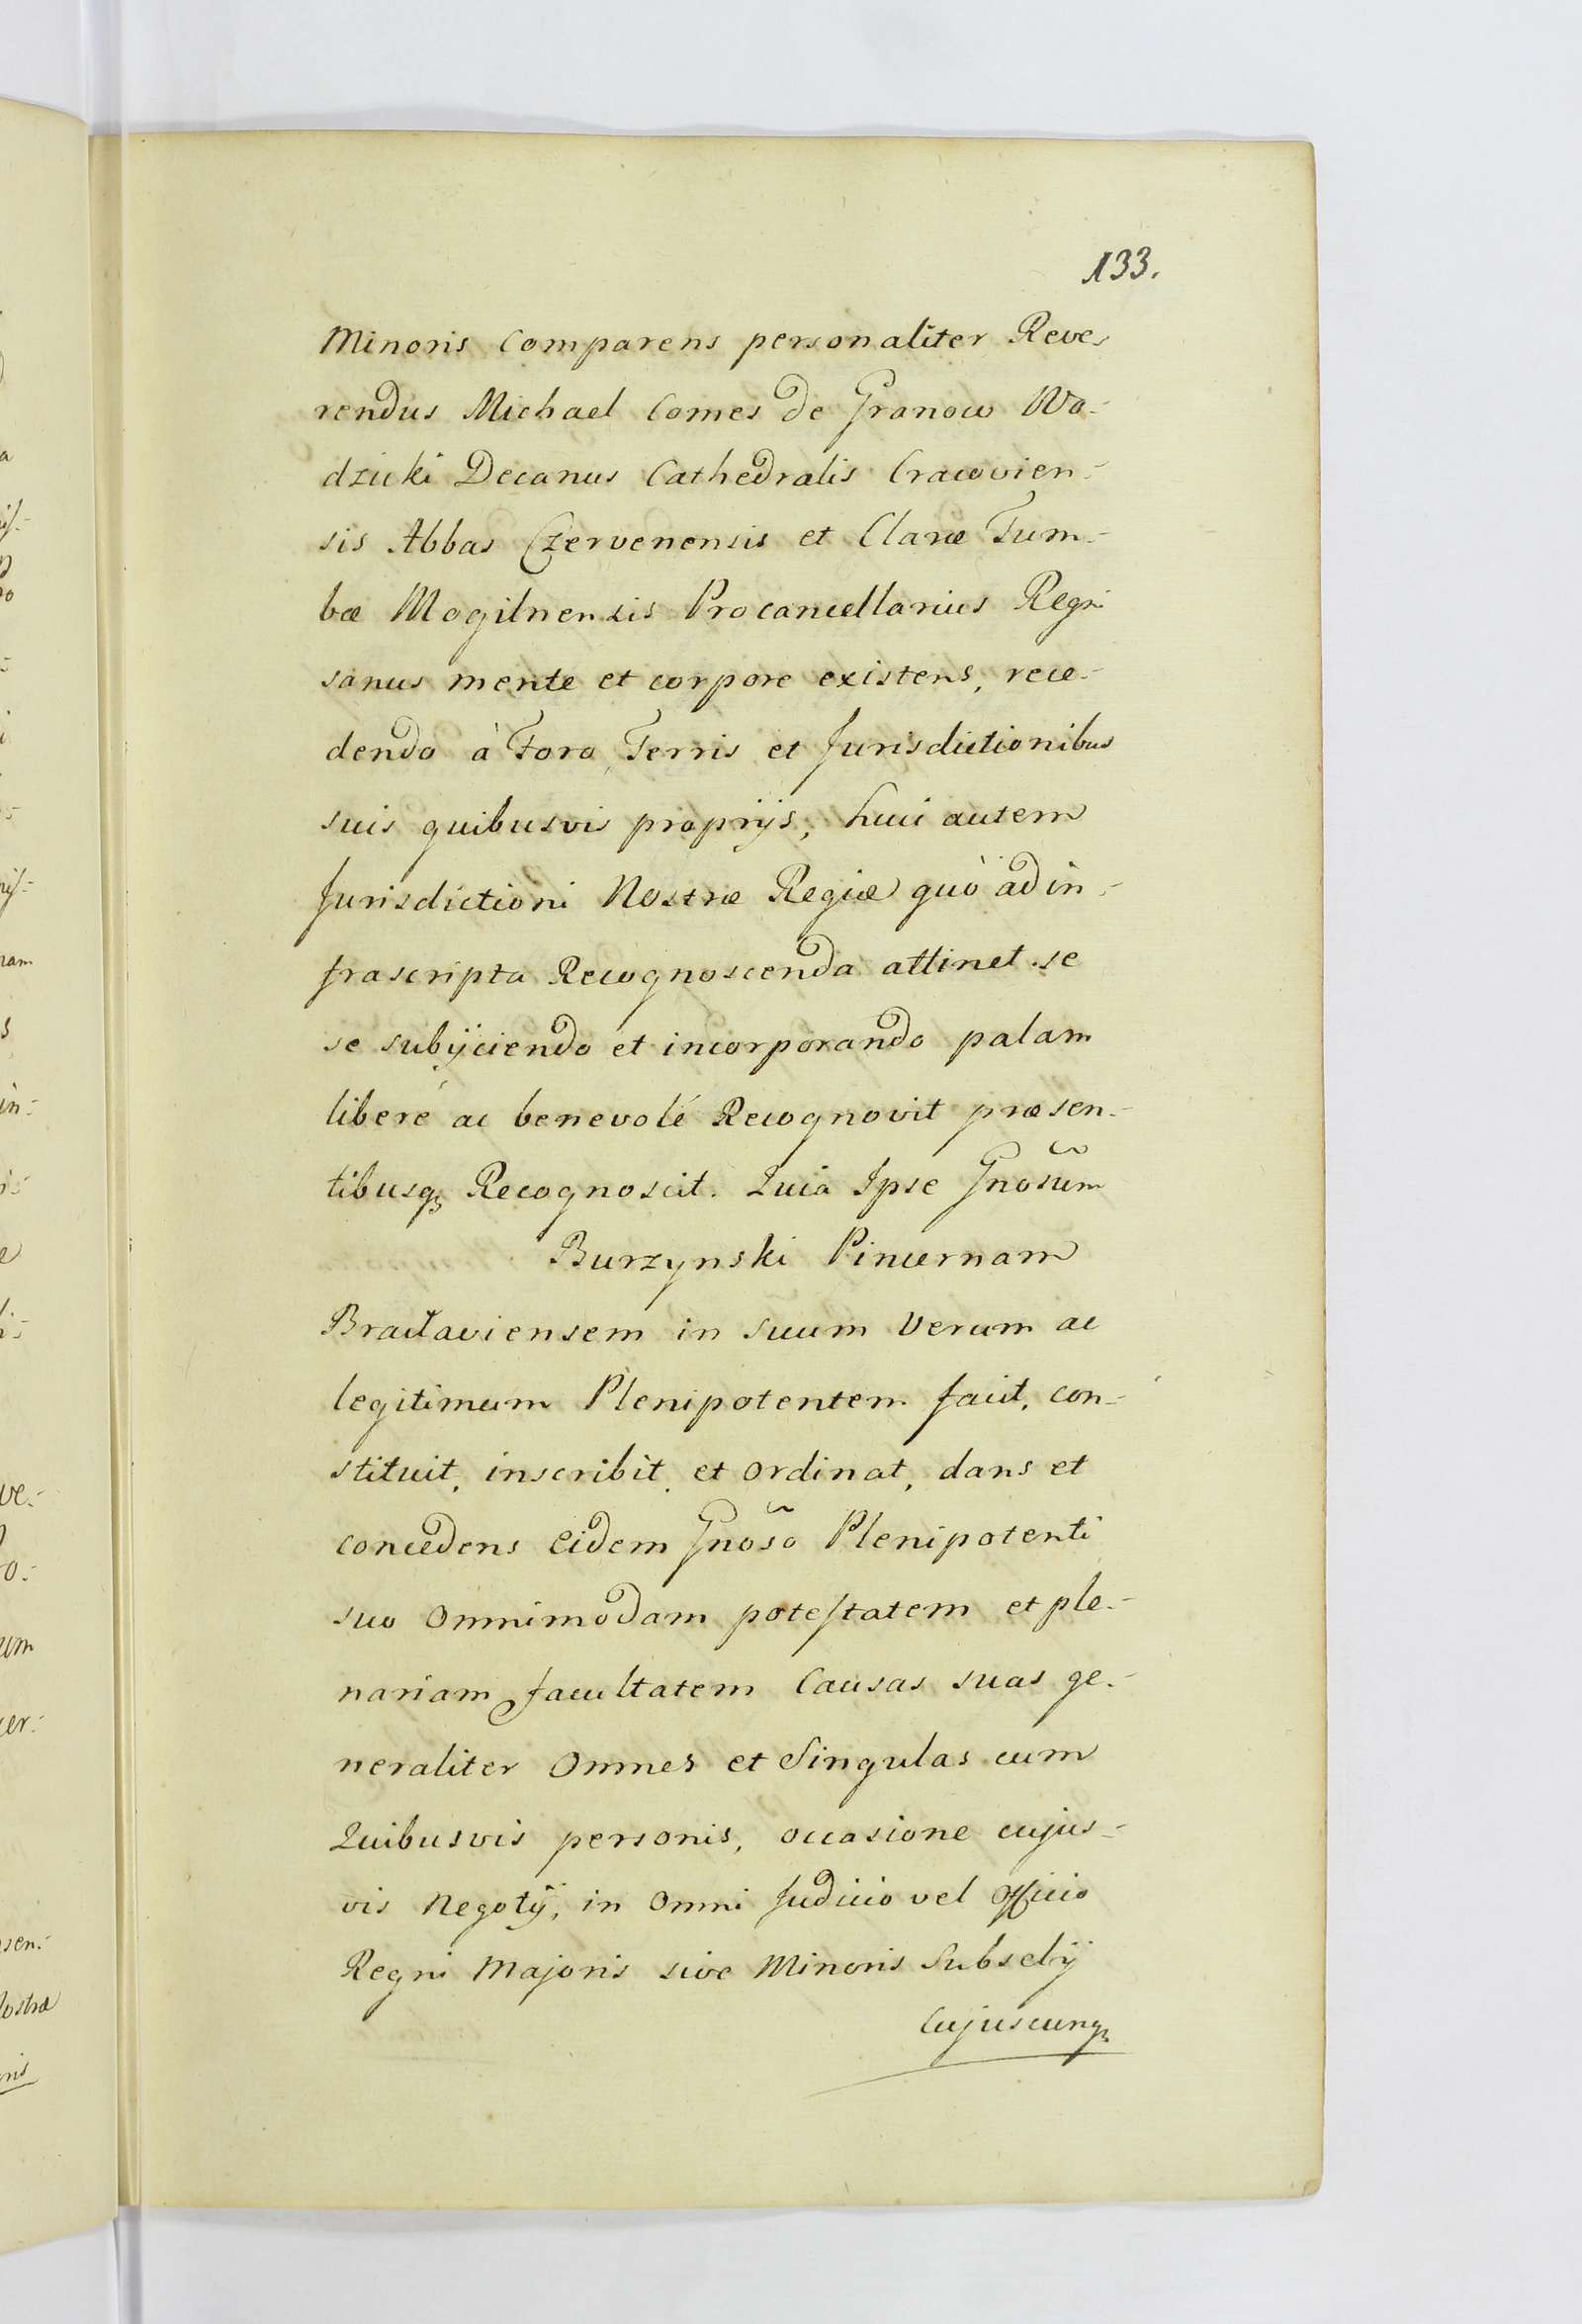 133.
Minoris Comparens personaliter Reve-
rendus Michael Comes de Granow Wo-
dzicki Decanus Cathedralis Cracovien-
sis Abbas Czervenensis et Claræ Tum-
bæ Mogilnensis Procancellarius Regni
sanus mente et corpore existens, rece-
dendo à Foro, Terris et Jurisdictionibus
suis quibusvis proprijs, huic autem
Jurisdictioni Nostræ Regiæ quò ad in-
frascripta Recognoscenda attinet se
se subijciendo et incorporando palam
liberé ac benevolé Recognovit præsen-
tibusq₃ Recognoscit. Quia Ipse Gnosum̃
Burzynski Pincernam
Braclaviensem in suum verum ac
legitimum Plenipotentem facit, con-
stituit, inscribit et ordinat, dans et
concedens eidem Gnos̃o Plenipotenti
suo omnimodam poteſtatem et ple-
nariam facultatem Causas suas ge-
neraliter omnes et Singulas cum
Quibusvis personis, occasione cujus-
vis Negotij, in omni Judicio vel officio
Regni Majoris sive Minoris Subselij
Cujuscunq₃